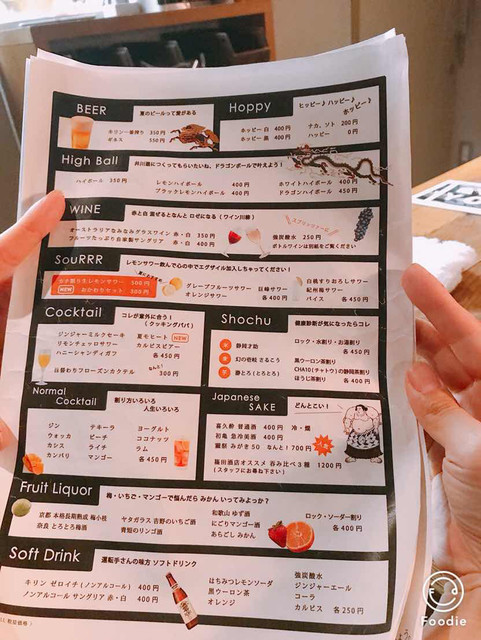 BEER
夏のビールって愛がある
キリン一番搾り 350円
ギネス 550円
Hoppy
ヒッピー♪ハッピー♪
ホッピー♪
ホッピー 白 400円
ホッピー 黒 400円
ナカ、ソト 200円
ハッピー 0円
High Ball
井川湖につくってもらいたいね、ドラゴンボールで叶えよう!
ハイボール 350円
レモンハイボール 400円
ブラックレモンハイボール 400円
ホワイトハイボール 400円
ドラゴンハイボール 450円
WINE
赤と白 混ぜるとなんと ロゼになる(ワイン川柳)
オーストラリアなみなみグラスワイン 赤・白 350円
フルーツたっぷり自家製サングリア 赤・白 400円
強炭酸水 250円
ボトルワインは別紙をご覧ください
SouRRR
レモンサワー飲んで心の中でエグザイル加入しちゃってください!
レモンサワー 500円
NEW おかわりセット 300円
グレープフルーツサワー
オレンジサワー
巨峰サワー
各400円
白桃すりおろしサワー
紀州梅サワー
バイス 各450円
Cocktail
コレが意外に合う!
(クッキングパパ)
ジンジャーミルクモーキ
リモンチェッロサワー
ハニーシャンディガフ
夏モヒート NEW
カルピスビアー
各450円
日替わりフローズンカクテル なんと! 500円
Shochu
健康診断が気になったらコレ
静岡才助
幻の壱岐 さるこう
静とろ(とろろ)
ロック・水割り・お湯割り
各450円
黒ウーロン茶割
CHA10(チャトウ)の静岡茶割り
ほうじ茶割り 各400円
Normal
Cocktail
割り方いろいろ
人生いろいろ
ジン
ウォッカ
カシス
カンパリ
テキーラ
ピーチ
ライチ
マンゴー
ヨーグルト
ココナッツ
ラム
各450円
Japanese
SAKE
どんとこい!
喜久酔 普通酒 400円 冷・燗
初亀 急冷美酒 400円
國香 みがき50 なんと!700円
篠田酒店オススメ 呑み比べ3種 1200円
(スタッフにお尋ね下さい)
Fruit Liquor
梅・いちご・マンゴーで悩んだら みかん いってみよっか?
京都 本格長期熟成 梅小枝
奈良 とろとろ梅酒
ヤタガラス 吉野のいちご酒
青短のリンゴ酒
和歌山 ゆず酒
にごりマンゴー酒
あらごし みかん
ロック・ソーダー割り
各400円
Soft Drink
運転手さんの味方 ソフトドリンク
キリン ゼロイチ(ノンアルコール) 400円
ノンアルコール サングリア 赤・白 400円
はちみつレモンソーダ
黒ウーロン茶
オレンジ
強炭酸水
ジンジャーエール
コーラ
カルピス 各250円
Foodie